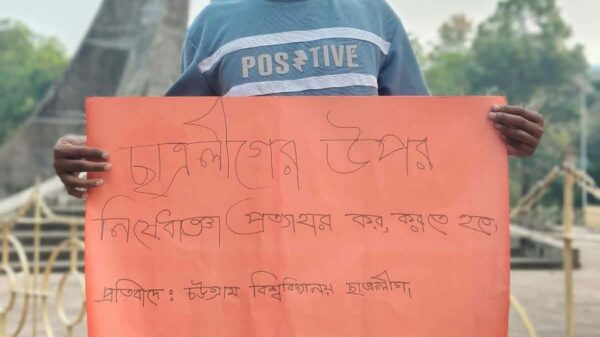 POSITIVE
ছাত্রলীগের উপর
নিষেধাজ্ঞা প্রত্যাহার কর, করতে হবে,
প্রতিবাদে : চট্টগ্রাম বিশ্ববিদ্যালয় ছাত্রলীগ,